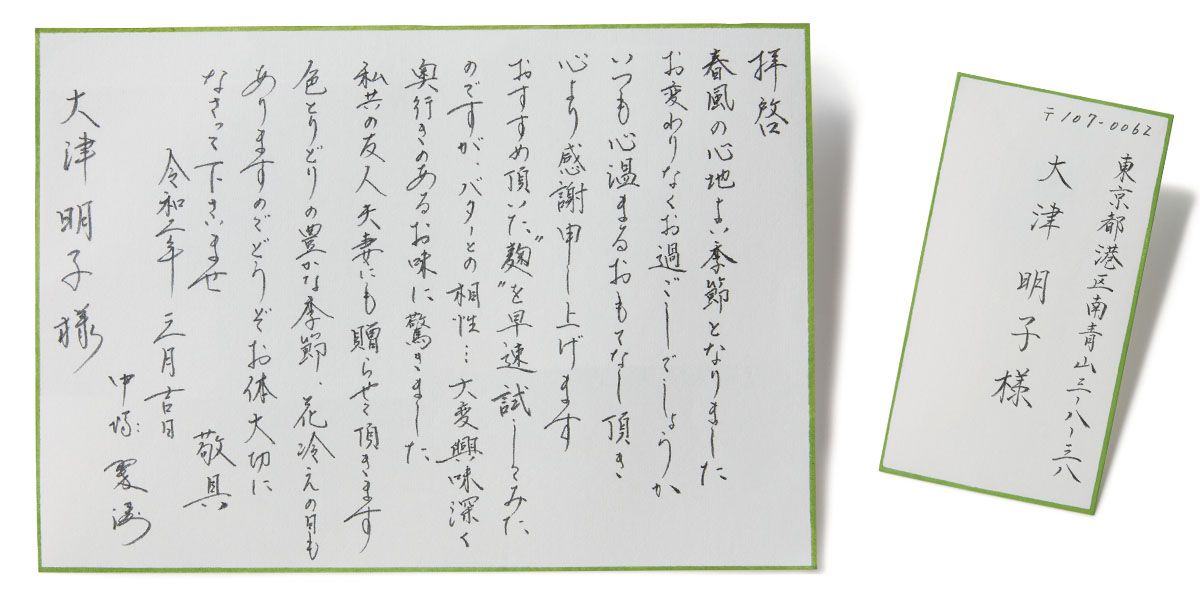 拝啓
春風の心地よい季節となりました
お変わりなくお過ごしでしょうか
いつも心温まるおもてなし頂き
心より感謝申し上げます
おすすめ頂いた〝麹〟を早速試してみた
のですが、バターとの相性…大変興味深く
奥行きのあるお味に驚きました
私共の友人夫妻にも贈らせて頂きます
色とりどりの豊かな季節、花冷えの日も
ありますのでどうぞお体大切に
なさって下さいませ
敬具
令和二年 三月吉日
中塚
大津明子様
〒107-0062
東京都港区南青山三ー八ー三八
大津明子様